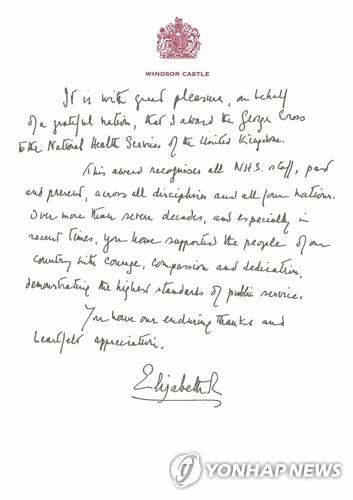 WINDSOR CASTLE
It is with great pleasure, on behalf
of a grateful nation, that I award the George Cross
to the National Health Services of the United Kingdom.
This award recognises all N.H.S. staff, past
and present, across all disciplines and all four nations.
Over more than seven decades, and especially in
recent times, you have supported the people of our
country with courage, compassion and dedication,
demonstrating the highest standards of public service.
You have our enduring thanks and
heartfelt appreciation.
Elizabeth R
YONHAP NEWS